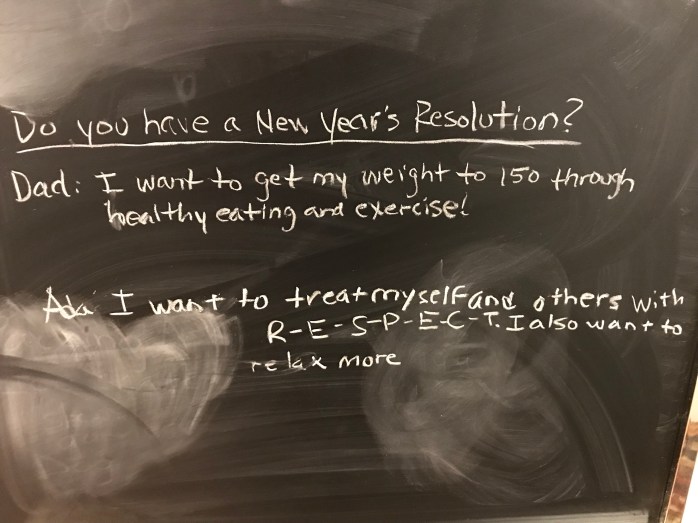 Do you have a New Year's Resolution?
Dad: I want to get my weight to 150 through
healthy eating and exercise!
Ada: I want to treat myself and others with
R-E-S-P-E-C-T. I also want to
relax more